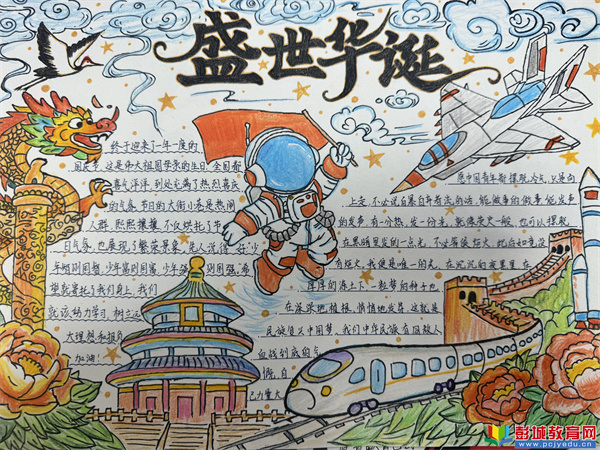 盛世华诞
终于迎来了一年一度的
国庆节,这是伟大祖国母亲的生日,全国都
喜气洋洋,到处充满了热烈喜庆
的气氛。节日的大街小巷是热闹
人群,熙熙攘攘,不仅烘托了节
日气氛,也展现了繁荣景象。先人说得好:"少
年胜则国胜,少年富则国富,少年强则国强。"希
望就寄托了我们身上,我们
就该努力学习,树立远
大理想和抱负
加油!
愿中国青年都摆脱冷气,只是向
上走,不必说自暴自弃者流的话,能做事的做事,能发声
的发声,有一份热,发一份光,就像萤火一般,也可以摆脱
在黑暗里发的一点光,不必等候炬火,此后如竟没
有炬火,我便是唯一的光,在沉沉的夜里
在深深地植根,悄悄地发芽,这就是
民族复兴中国梦,我们中华民族有同敌人
血战到底的气
慨,自
己力重大
彭城教育网
www.pcjyedu.cn